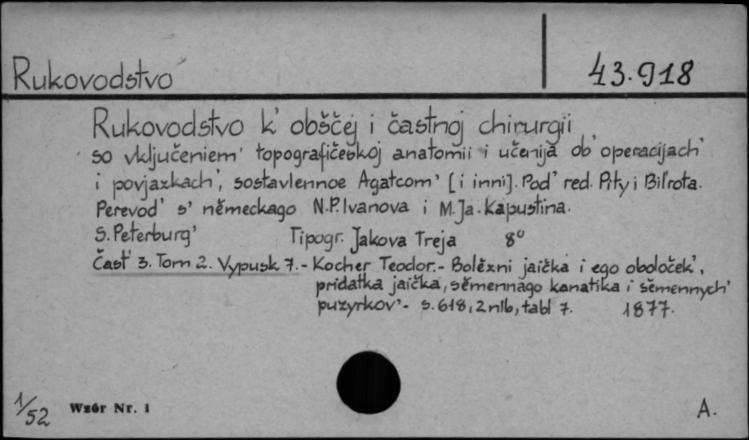 Rukovodstvo
43.918
Rukovodstvo k' obščej i častnoj chirurgii
so vključeniem' topografičeskoj anatomii i učenija ob' operacijach'
i povjazkach', sostavlennoe Agatcom' [i inni]. Pod' red. Pity i Bil'rota.
Perevod' s' německago N.P. Ivanova i M.Ja. Kapustina.
S. Peterburg' Tipogr. Jakova Treja 8°
Čast' 3. Tom 2. Vypusk 7. - Kocher Teodor. - Bolězni jaička i ego oboloček',
pridatka jaička, sěmennago kanatika i sěmennych'
puzyrkov' - s. 618, 2 nlb, tabl 7. 1877.
1/52 Wzór Nr. 1 A.